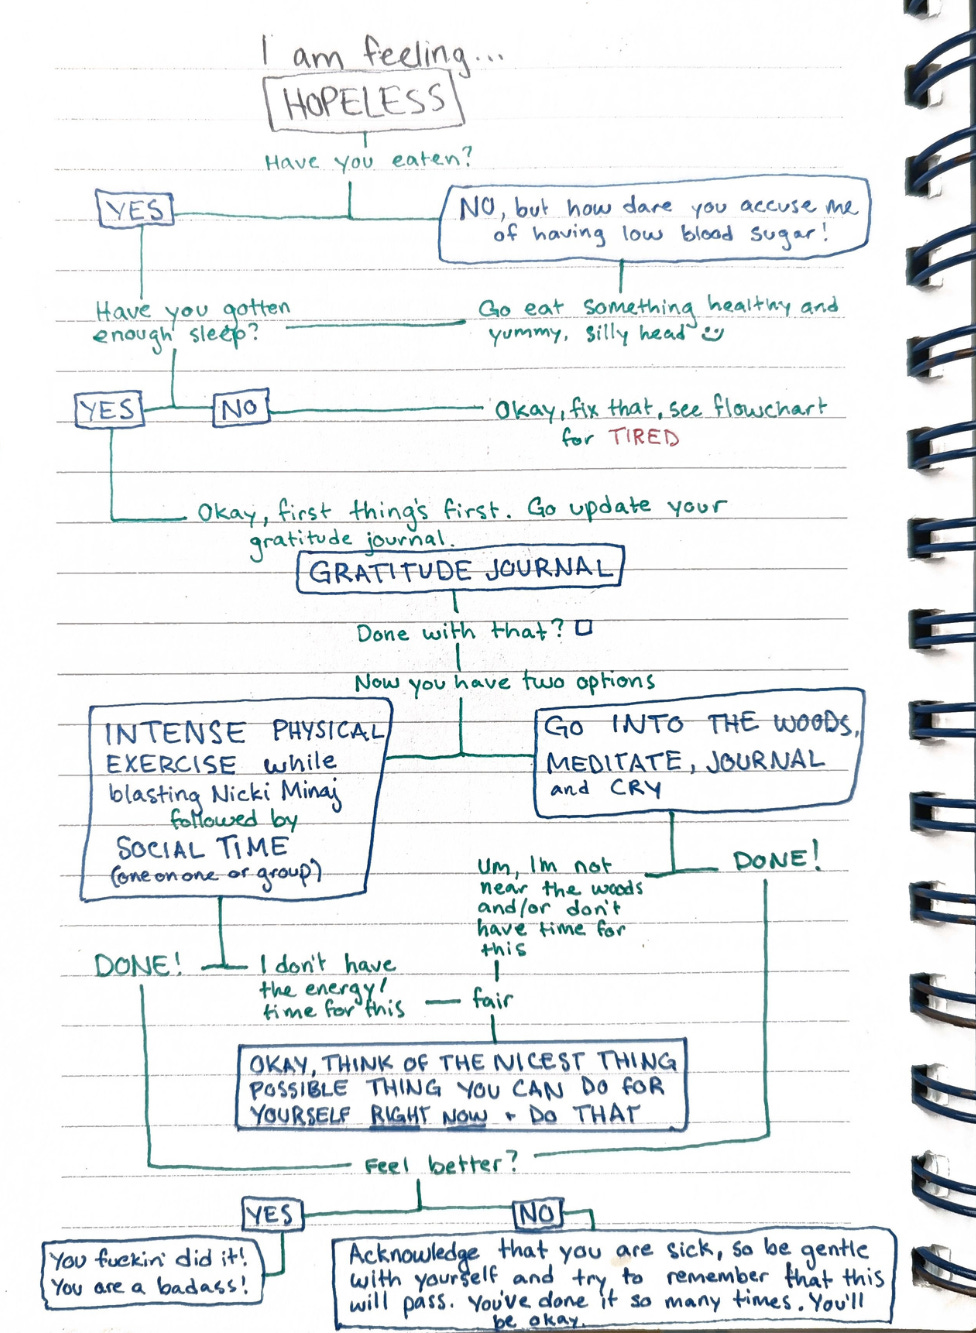 I am feeling...
HOPELESS
Have you eaten?
YES
NO, but how dare you accuse me
of having low blood sugar!
Have you gotten
enough sleep?
Go eat something healthy and
yummy, silly head
YES
NO
Okay, fix that, see flowchart
for TIRED
Okay, first thing's first. Go update your
gratitude journal.
GRATITUDE JOURNAL
Done with that?
Now you have two options
INTENSE PHYSICAL
EXERCISE while
blasting Nicki Minaj
followed by
SOCIAL TIME
(one on one or group)
GO INTO THE WOODS,
MEDITATE, JOURNAL
and CRY
Um, I'm not
near the woods
and/or don't
have time for
this
DONE!
DONE!
I don't have
the energy/
time for this
fair
OKAY, THINK OF THE NICEST THING
POSSIBLE THING YOU CAN DO FOR
YOURSELF RIGHT NOW + DO THAT
Feel better?
YES
NO
You fuckin' did it!
You are a badass!
Acknowledge that you are sick, so be gentle
with yourself and try to remember that this
will pass. You've done it so many times. You'll
be okay.